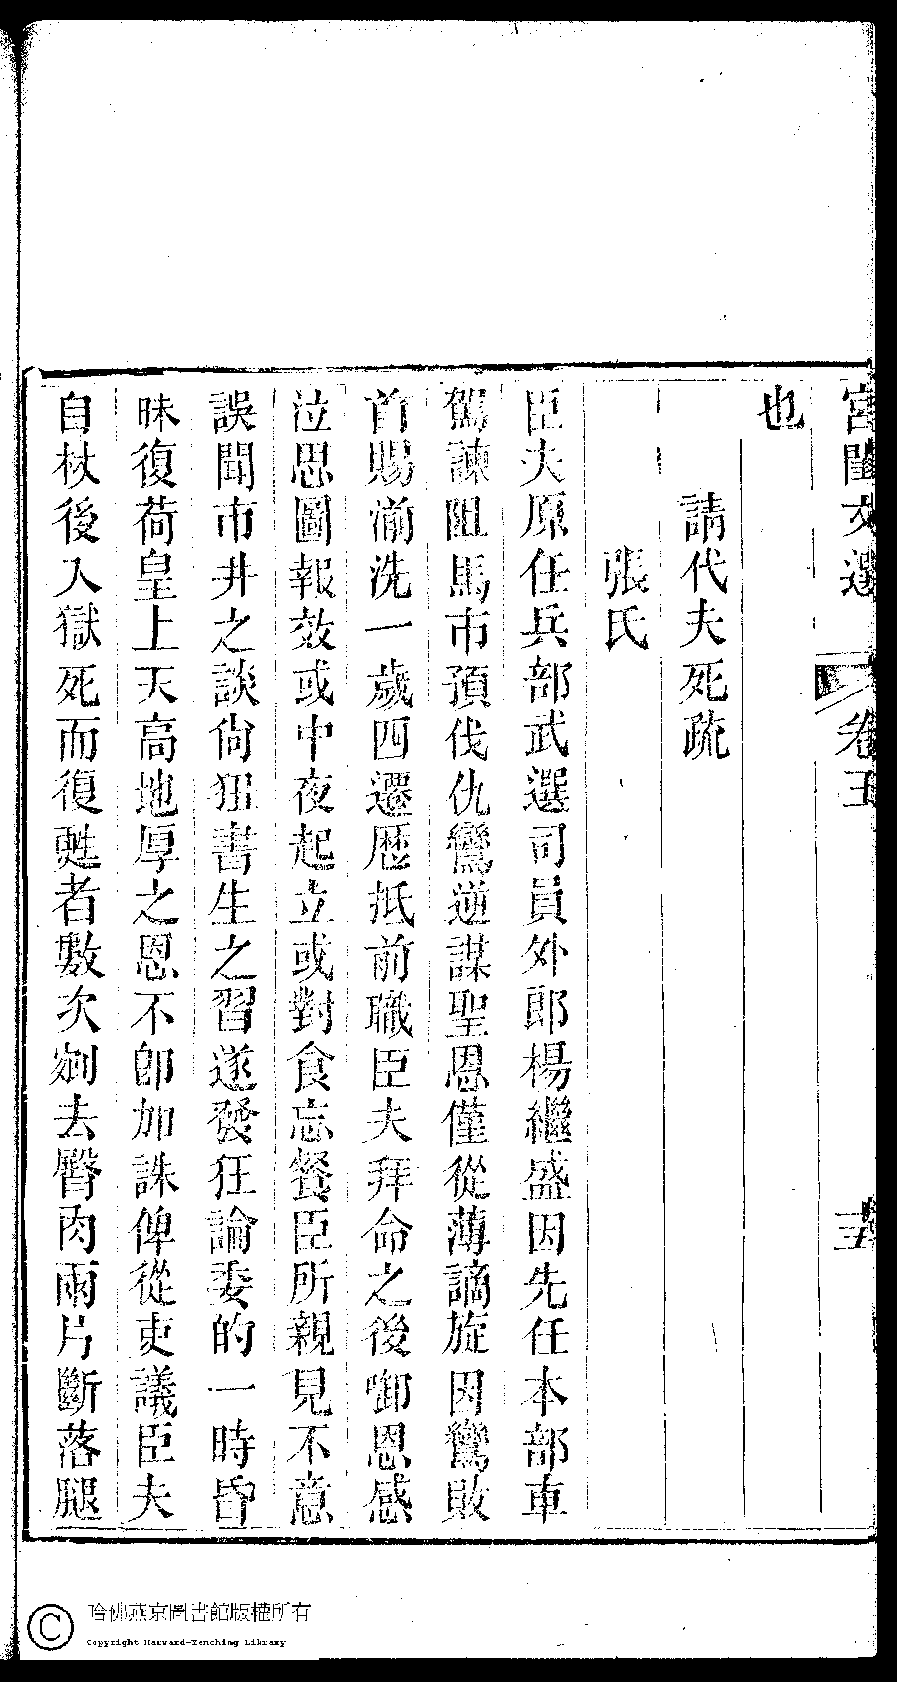 宮閨文選 卷五 五
也
請代夫死疏
張氏
臣夫原任兵部武選司員外郎楊繼盛因先任本部車
駕諫阻馬市預伐仇鸞逆謀聖恩僅從薄謫旋因鸞敗
首賜湔洗一歲四遷歷抵前職臣夫拜命之後啣恩感
泣思圖報效或中夜起立或對食忘餐臣所親見不意
誤聞市井之談尙狃書生之習遂發狂論委的一時昏
昧復荷皇上天高地厚之恩不卽加誅俾從吏議臣夫
自杖後入獄死而復甦者數次剜去臀肉兩片斷落腿
哈佛燕京圖書館版權所有
© Copyright Harvard-Yenching Library